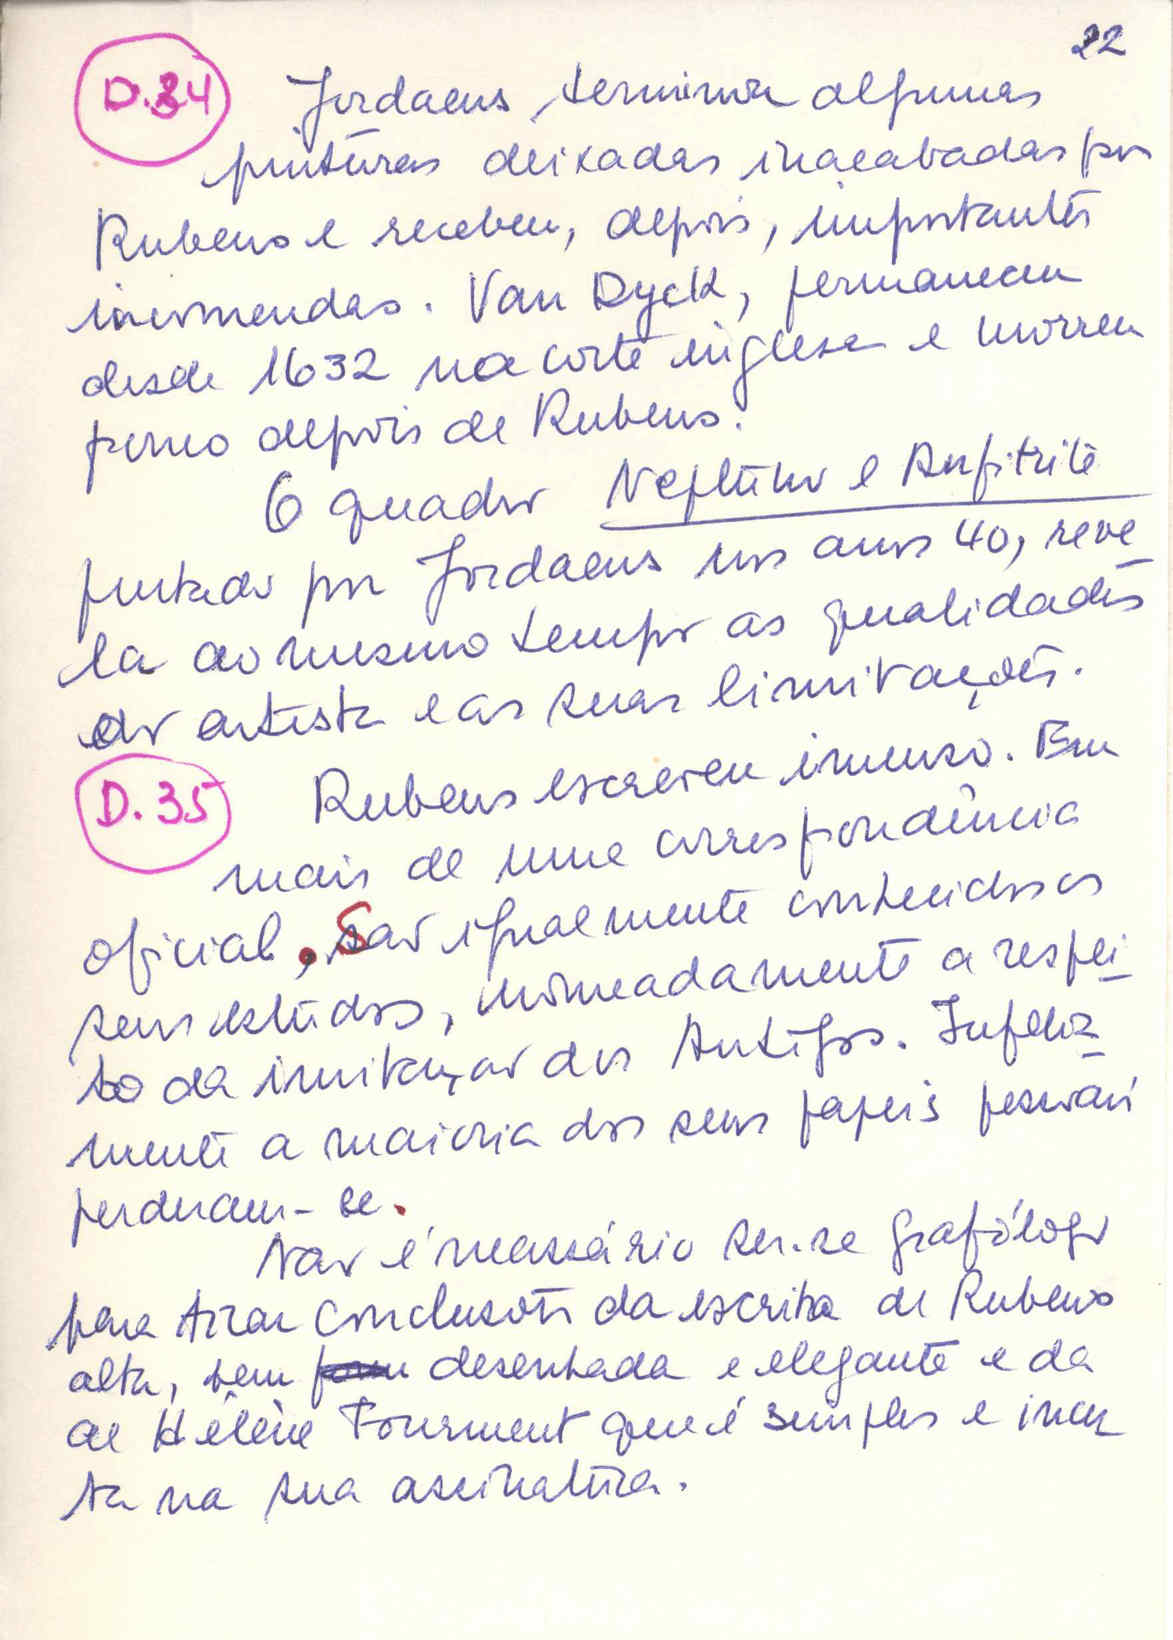 22
D.34 Jordaens, terminou algumas
pinturas deixadas inacabadas por
Rubens e recebeu, depois, importantes
incomendas. Van Dyck, permaneceu
desde 1632 na corte inglesa e morreu
pouco depois de Rubens.
O quadro Neptuno e Anfitrite
pintado por Jordaens nos anos 40, reve
la ao mesmo tempo as qualidades
do artista e as suas limitações.
D.35 Rubens escreveu imenso. Em
mais de uma correspondência
oficial, São igualmente conhecidos os
seus estudos, nomeadamente a respei
to da imitação dos Antigos. Infeliz
mente a maioria dos seus papeis pessoais
perderam-se.
Não é necessário ser-se grafólogo
para tirar conclusões da escrita de Rubens
alta, bem desenhada e elegante e da
de Hélène Fourment que é simples e incer
ta na sua assinatura.